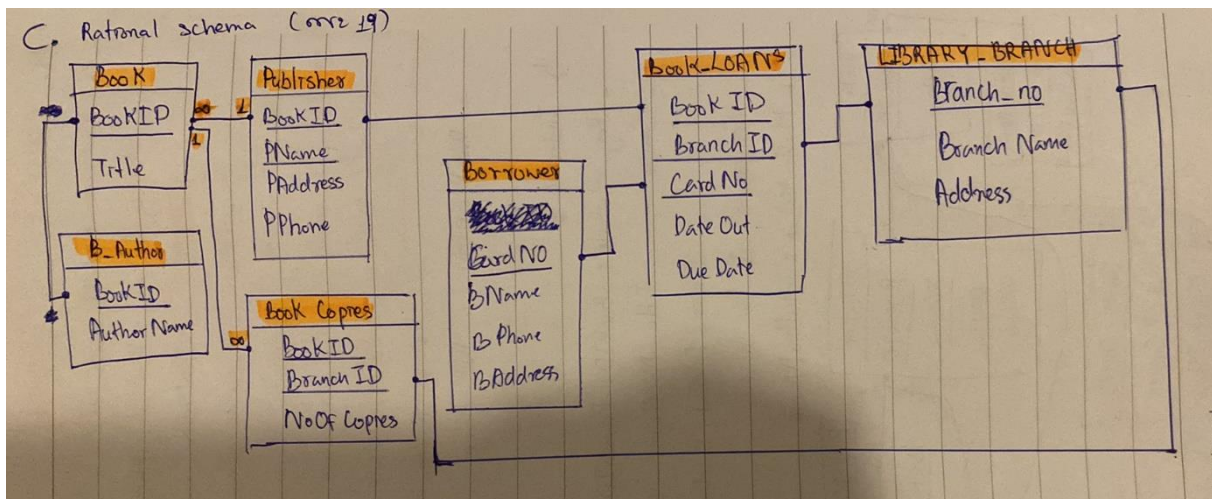 C. Rational schema
Book
BookID
Title
B_Author
BookID
AuthorName
Publisher
BookID
PName
PAddress
PPhone
Book Copies
BookID
Branch ID
NoOf Copies
Borrower
Card NO
BName
B Phone
BAddress
Book_LOANS
Book ID
Branch ID
Card No
Date Out
Due Date
LIBRARY_BRANCH
Branch_no
Branch Name
Address
∞
1
1
∞